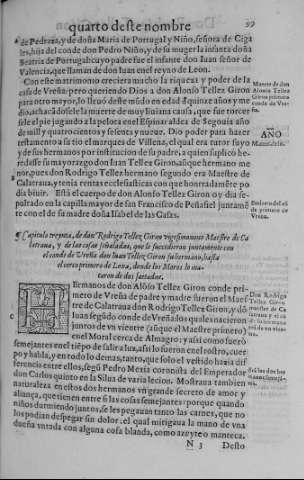 quarto deste nombre
59
de Pedraza, y de doña Maria de Portugal y Niño, señora de Ciga
les, hija del conde don Pedro Niño, y de su muger la infanta doña
Beatriz de Portugal: cuyo padre fue el infante don Iuan señor de
Valencia, que llaman de don Iuan en el reyno de Leon.
Con este matrimonio creciera mucho la riqueza y poder de la
casa de Vreña: pero queriendo Dios a don Alonso Tellez Giron
para otro mayor, lo lleuó deste mũdo en edad d quinze años y me
dio, achacãdosele la muerte de muy liuiana causa, q fue torcer
sele el pie jugando a la pelota en el Espinar aldea de Segouia año
de mill y quatrocientos y sesenta y nueue. Dio poder para hazer
testamento a su tio el marques de Villena, el qual era tutor suyo
y de sus hermanos por institucion de su padre, y quien suplicó he-
dasse su mayorazgo don Iuan Tellez Giron, aũque hermano me
nor, pues don Rodrigo Tellez hermano segundo era Maestre de
Calatraua, y tenia rentas ecclesiasticas con que honrradamẽte po
dia biuir. Està el cuerpo de don Alonso Tellez Giron oy dia se-
pultado en la capilla mayor de san Francisco de Peñafiel juntamẽ
te con el de su madre doña Isabel de las Casas.
Muerte de don
Alonso Tellez
Giron primero
conde de Vre
ña.
AÑO
Capitulo treynta, de don Rodrigo Tellez Giron vigesimonono Maestre de Ca
latraua, y de las cosas señaladas, que le succedieron juntamente con
el conde de Vreña don Iuan Tellez Giron su hermano, hasta
el cerco primero de Loxa, donde los Moros lo ma-
taron de dos saetadas.
HErmanos de don Alõso Tellez Giron conde pri-
mero de Vreña de padre y madre fueron el Maes
tre de Calatraua don Rodrigo Tellez Giron, y dõ
Iuan segũdo conde de Vreña: los quales nacieron
juntos de vn vientre (aũque el Maestre primero)
en el Moral cerca de Almagro: y assi como fuerõ
semejantes en el tiẽpo de salir a luz, assi lo fueron en el rostro, cuer-
po y habla, y en todo lo demas, tanto, que solo el vestido hazia dif
ferencia entre ellos, segũ Pedro Mexia coronista del Emperador
don Carlos quinto en la Silua de varia lecion. Mostraua tambien
naturaleza en estos dos hermanos vn grande secreto de amor y
aliança, que tienen entre si las cosas semejantes: porque quando
niños durmiendo juntos, se les pegauan tanto las carnes, que no
los podian despegar sin dolor: el qual mitigaua la mano de vna
dueña vntada con alguna cosa blanda, como azeyte o manteca.
Don Rodrigo
Tellez Giron
maestre de Ca
latraua y el cõ
de su hermano
N 3
Desto